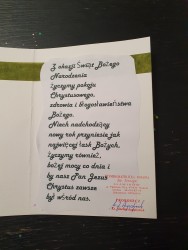 Z okazji Świąt Bożego
Narodzenia
życzymy pokoju
Chrystusowego,
zdrowia i błogosławieństwa
Bożego.
Niech nadchodzący
nowy rok przyniesie jak
najwięcej łask Bożych,
życzymy również,
bożej mocy co dnia i
by nasz Pan Jezus
Chrystus zawsze
był wśród nas.